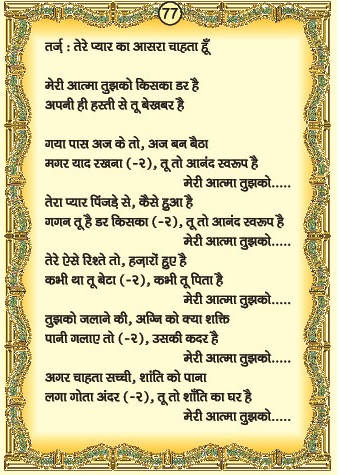 77
तर्ज़ : तेरे प्यार का आसरा चाहता हूँ
मेरी आत्मा तुझको किसका डर है
अपनी ही हस्ती से तू बेखबर है
गया पास अज के तो, अज बन बैठा
मगर याद रखना (-२), तू तो आनंद स्वरूप है
मेरी आत्मा तुझको.....
तेरा प्यार पिंजड़े से, कैसे हुआ है
गगन तू है डर किसका (-२), तू तो आनंद स्वरूप है
मेरी आत्मा तुझको.....
तेरे ऐसे रिश्ते तो, हज़ारों हुए है
कभी था तू बेटा (-२), कभी तू पिता है
मेरी आत्मा तुझको.....
तुझको जलाने की, अग्नि को क्या शक्ति
पानी गलाए तो (-२), उसकी कदर है
मेरी आत्मा तुझको.....
अगर चाहता सच्ची, शांति को पाना
लगा गोता अंदर (-२), तू तो शाँति का घर है
मेरी आत्मा तुझको.....